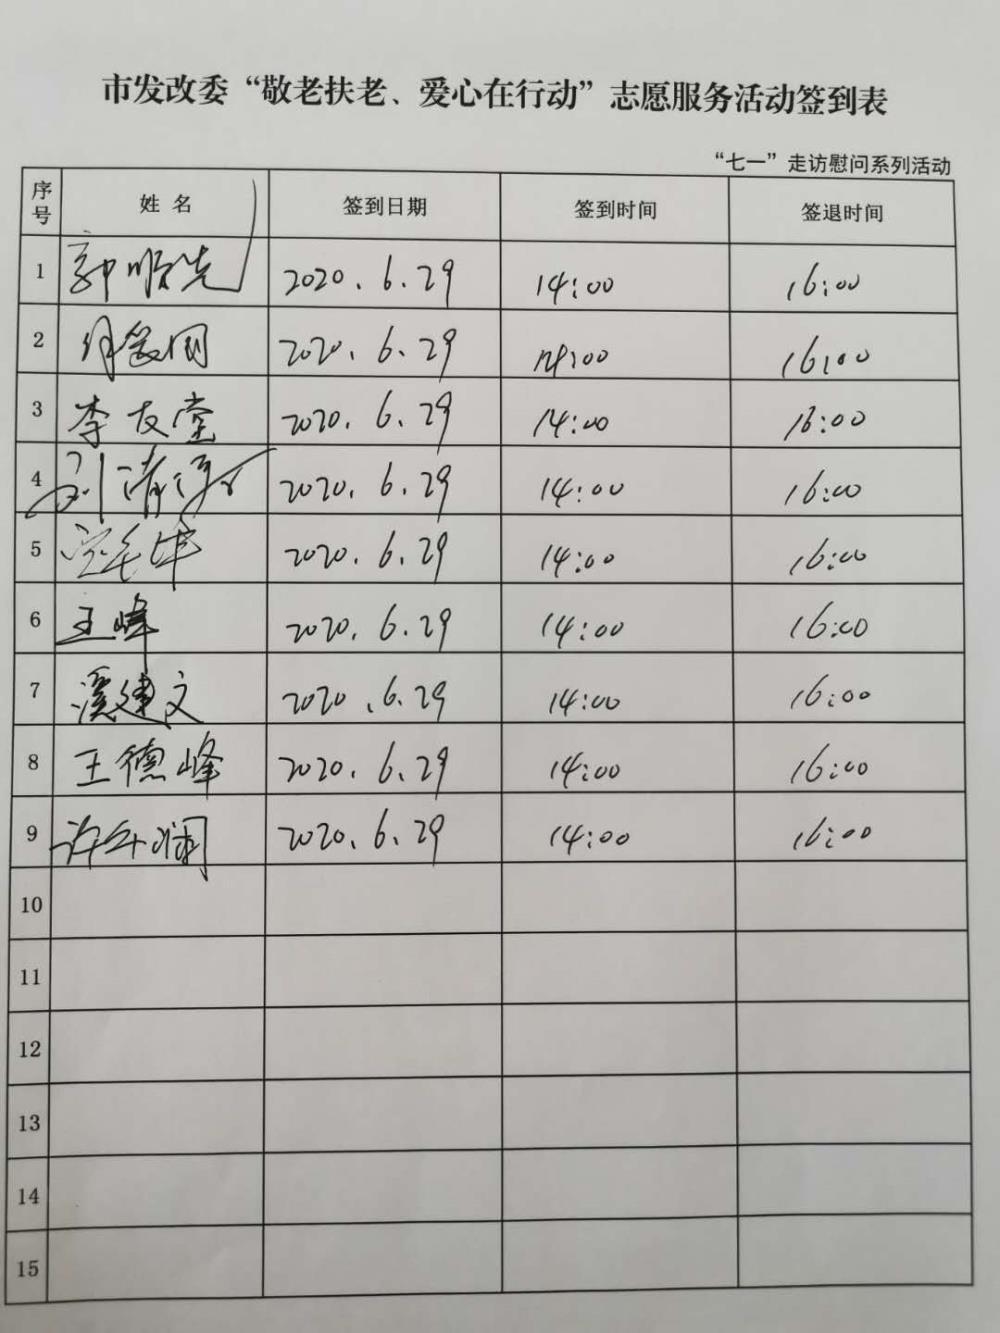 市发改委“敬老扶老、爱心在行动”志愿服务活动签到表
“七一”走访慰问系列活动
序号 姓名 签到日期 签到时间 签退时间
1 郭顺先 2020.6.29 14:00 16:00
2 2020.6.29 14:00 16:00
3 李友堂 2020.6.29 14:00 16:00
4 刘清 2020.6.29 14:00 16:00
5 2020.6.29 14:00 16:00
6 王峰 2020.6.29 14:00 16:00
7 溪建文 2020.6.29 14:00 16:00
8 王德峰 2020.6.29 14:00 16:00
9 许 2020.6.29 14:00 16:00
10
11
12
13
14
15